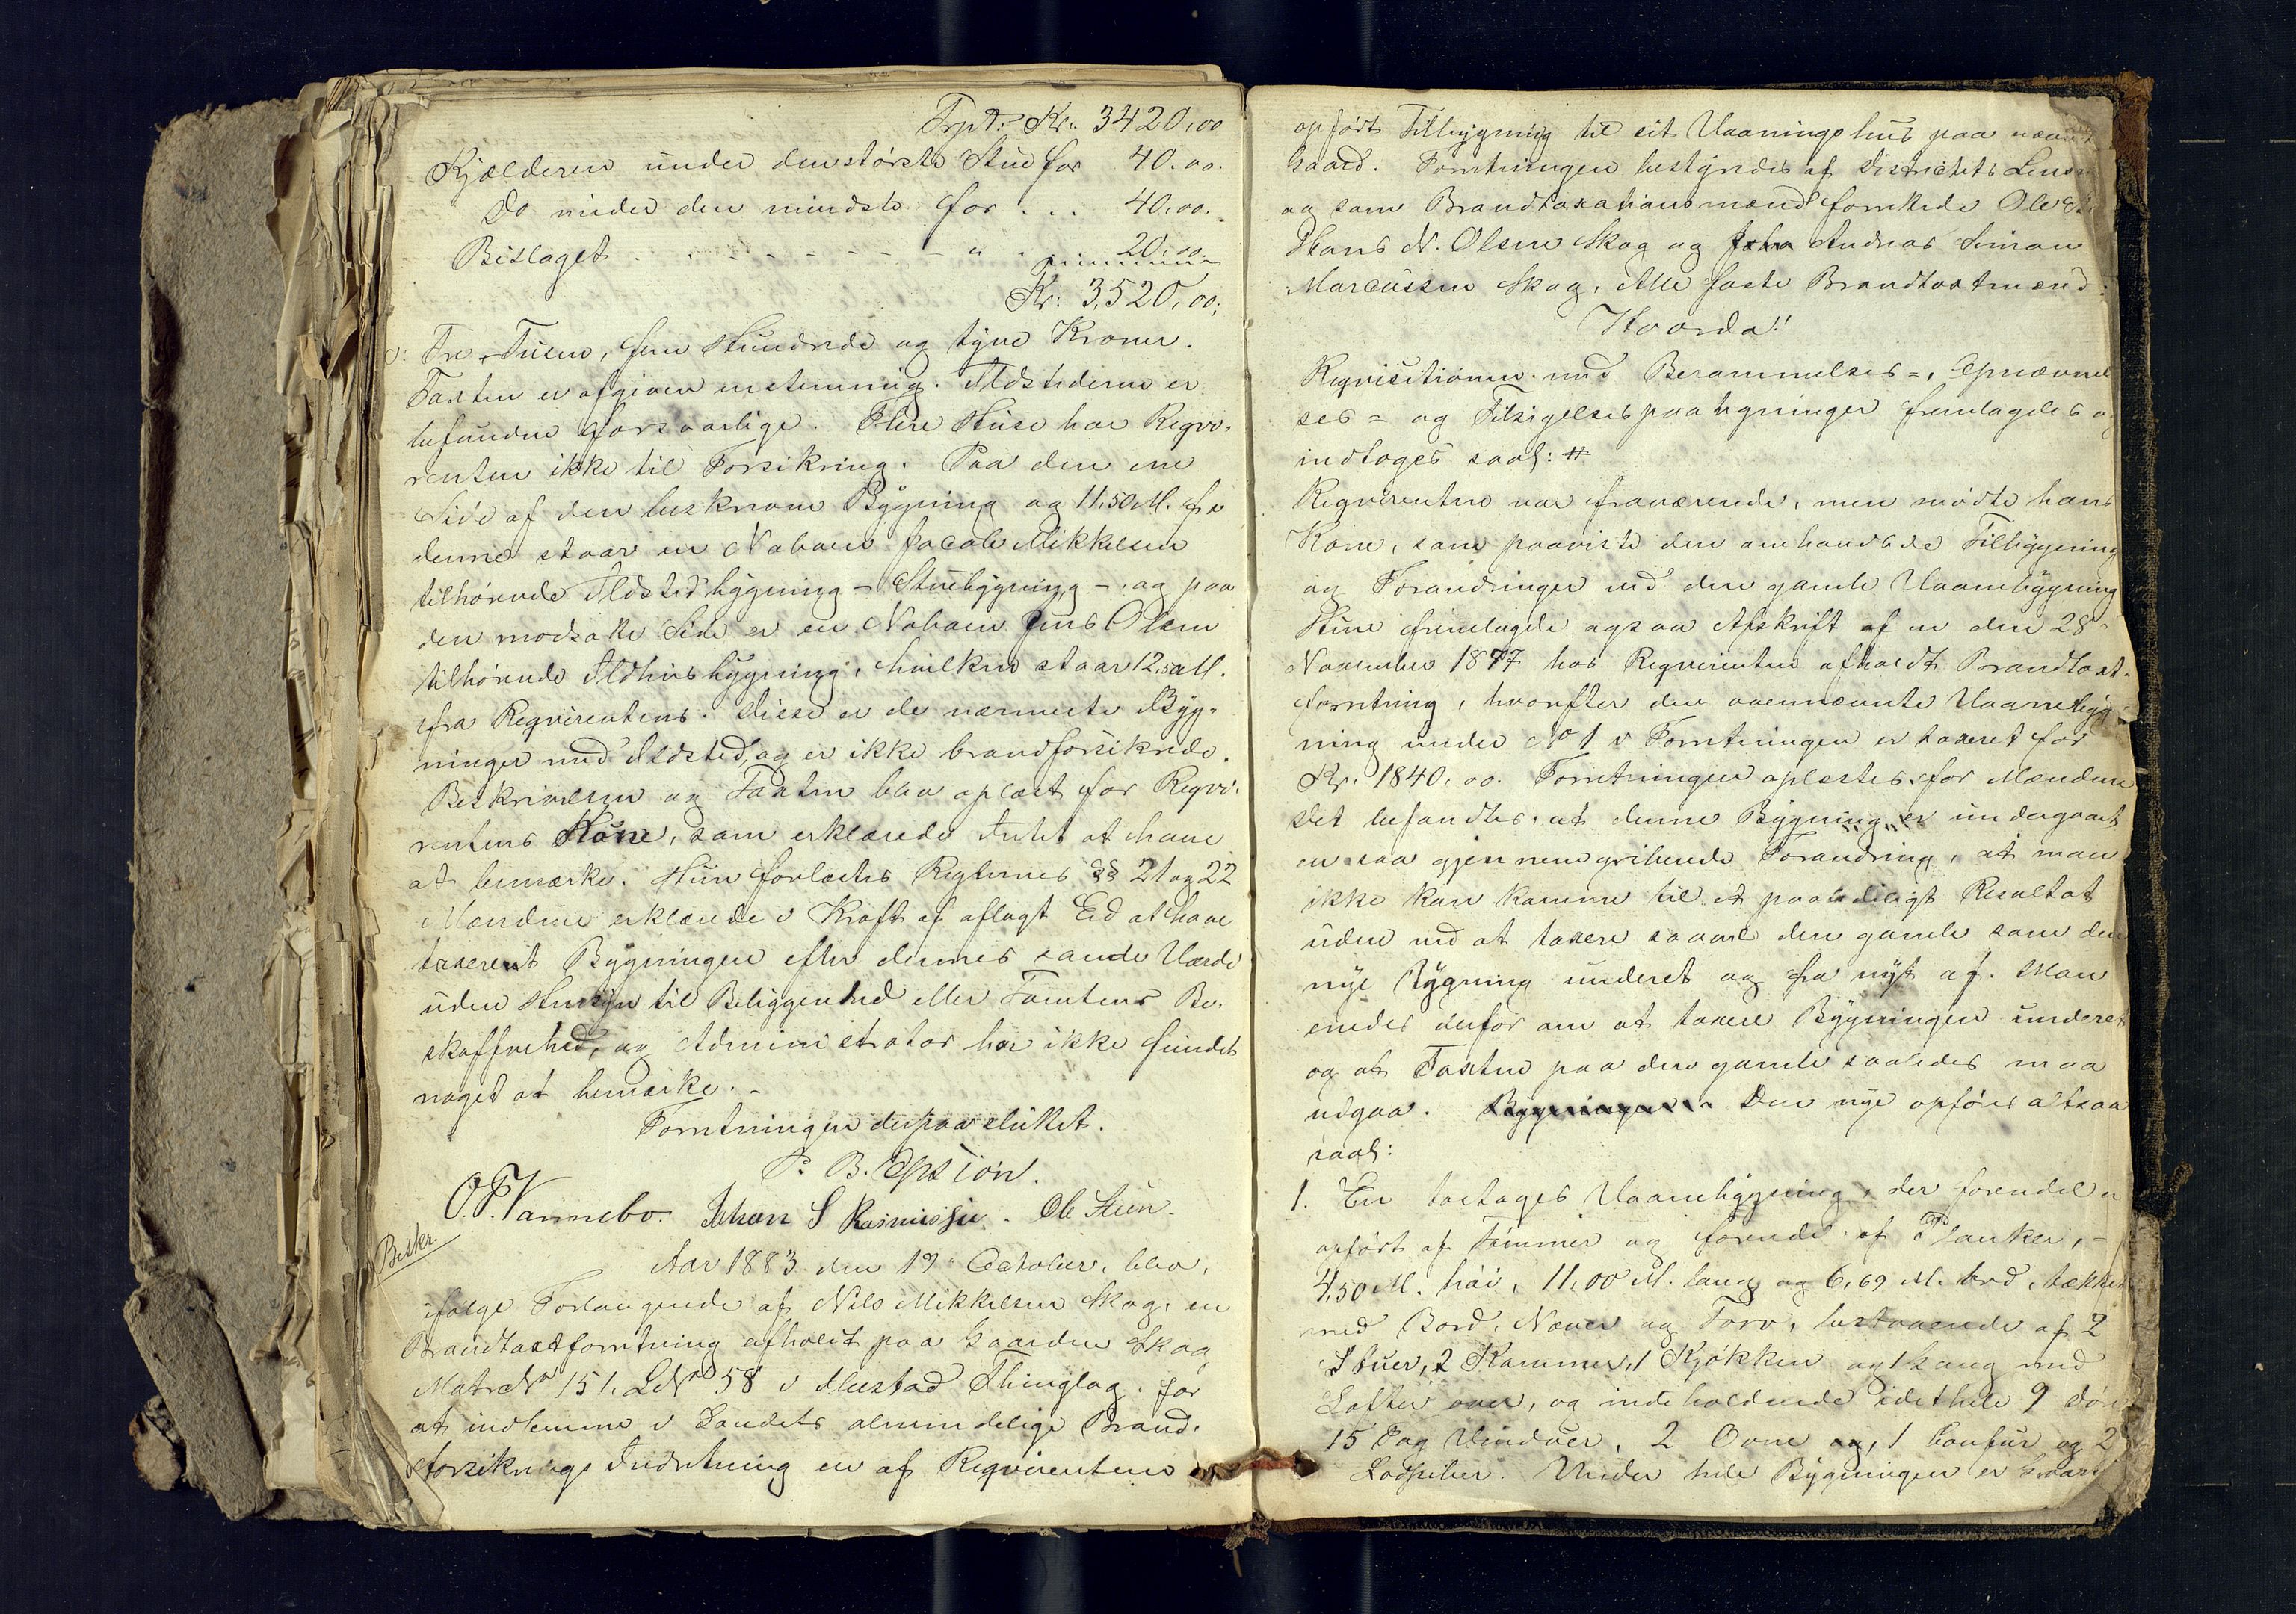 Trpt: Kr. 3420,00
Kjælderen under den største Stue for 40.00.
Do under den mindste for . . . 40,00.
Bislaget . . . . . . . . " . . 20,00
Kr. 3,520,00.
Tre Tusen, fem Hundrede og tyve Kroner.
Taxten er afgiven enstemmig. Ildstederne er
befundne forsvarlige. Flere Huse har Reqvi-
renten ikke til Forsikring. Paa den ene
Side af den beskrevne Bygning og 11,50 M. fra
denne staar en Naboen Jacob Mikkelsen
tilhørende Ildstedbygning - Stuebygning - og paa
den modsatte Side er en Naboen Jens Olsen
tilhørende Ildhusbygning, hvilken staar 12,50 M.
fra Reqvirentens. Disse er de nærmeste Byg-
ninger med Ildsted, og er ikke brandforsikrede.
Beskrivelsen og Taxten blev oplæst for Reqvi-
rentens Kone, som erklærede Intet at have
at bemærke. Hun forlæstes Reglernes §§ 21 og 22
Mændene erklærede i Kraft af aflagt Ed at have
taxeret Bygningen efter dennes sande Værdi
uden Hensyn til Beliggenhed eller Tomtens Be-
skaffenhed, og Administrator har ikke fundet
noget at bemærke. -
Forretningen derpaa sluttet.
P. B.
O. P. Vannebo. Johan S Rasmussen. Ole Steen.
Beskr.
Aar 1883 den 19 October, blev,
ifølge Forlangende af Nils Mikkelsen Skog, en
Brandtaxtforretning afholdt paa Gaarden Skog
Matr No 151. LNo 58 i Thinglag, for
at indlemme i Landets almindelige Brand-
forsikrings Indretning en af Reqvirenten
opført Tilbygning til sit Vaaningshus paa
Gaard. Forretningen bestyredes af Districtets
og som Brandtaxationsmænd fremkede Ole
Hans N. Olsen Skog og Andreas Simon
Marcussen Skog, Alle faste Brandtaxtmænd:
Hvorda!!
Reqvisitionen med Berammelses =, Opnævnel
ses = og Tilsigelsespaategninger fremlagdes og
indtages saal: #
Reqvirenten var fraværende, men mødte hans
Kone, som paaviste den omhandlede Tilbygning
og Forandringer ved den gamle Vaanebygning
Hun fremlagde ogsaa Afskrift af en den 28
November 1877 hos Reqvirenten afholdt Brandtaxt-
forretning, hvorefter den ovennævnte Vaanebyg-
ning under No 1 i Forretningen er taxeret for
Kr. 1840,00. Forretningen oplæstes for Mændene
Det befandtes, at denne Bygning er undergaaet
en saa gjennemgribende Forandring, at man
ikke kan komme til et paalideligt Resultat
uden ved at taxere saavel den gamle som den
nye Bygning underet og fra nyt af. Man
enedes derfor om at taxere Bygningen underet
og at Taxten paa den gamle saaledes maa
udgaa. Den nye opføres altsaa
saal:
1. En toetages Vaanebygning, der forendel er
opført af Tømmer og forendel af Planker, -
4,50 M. høi, 11,00 M. lang og 6,69 M. bred, tækket
med Bord, Næver og Torv, bestaaende af 2
Stuer, 2 Kammer, 1 Kjøkken og 1 Gang med
Lofter over, og indeholdende idethele 9 Døre
15 Fag Vinduer, 2 Ovne og, 1 Comfur og 2
. Under hele Bygningen er